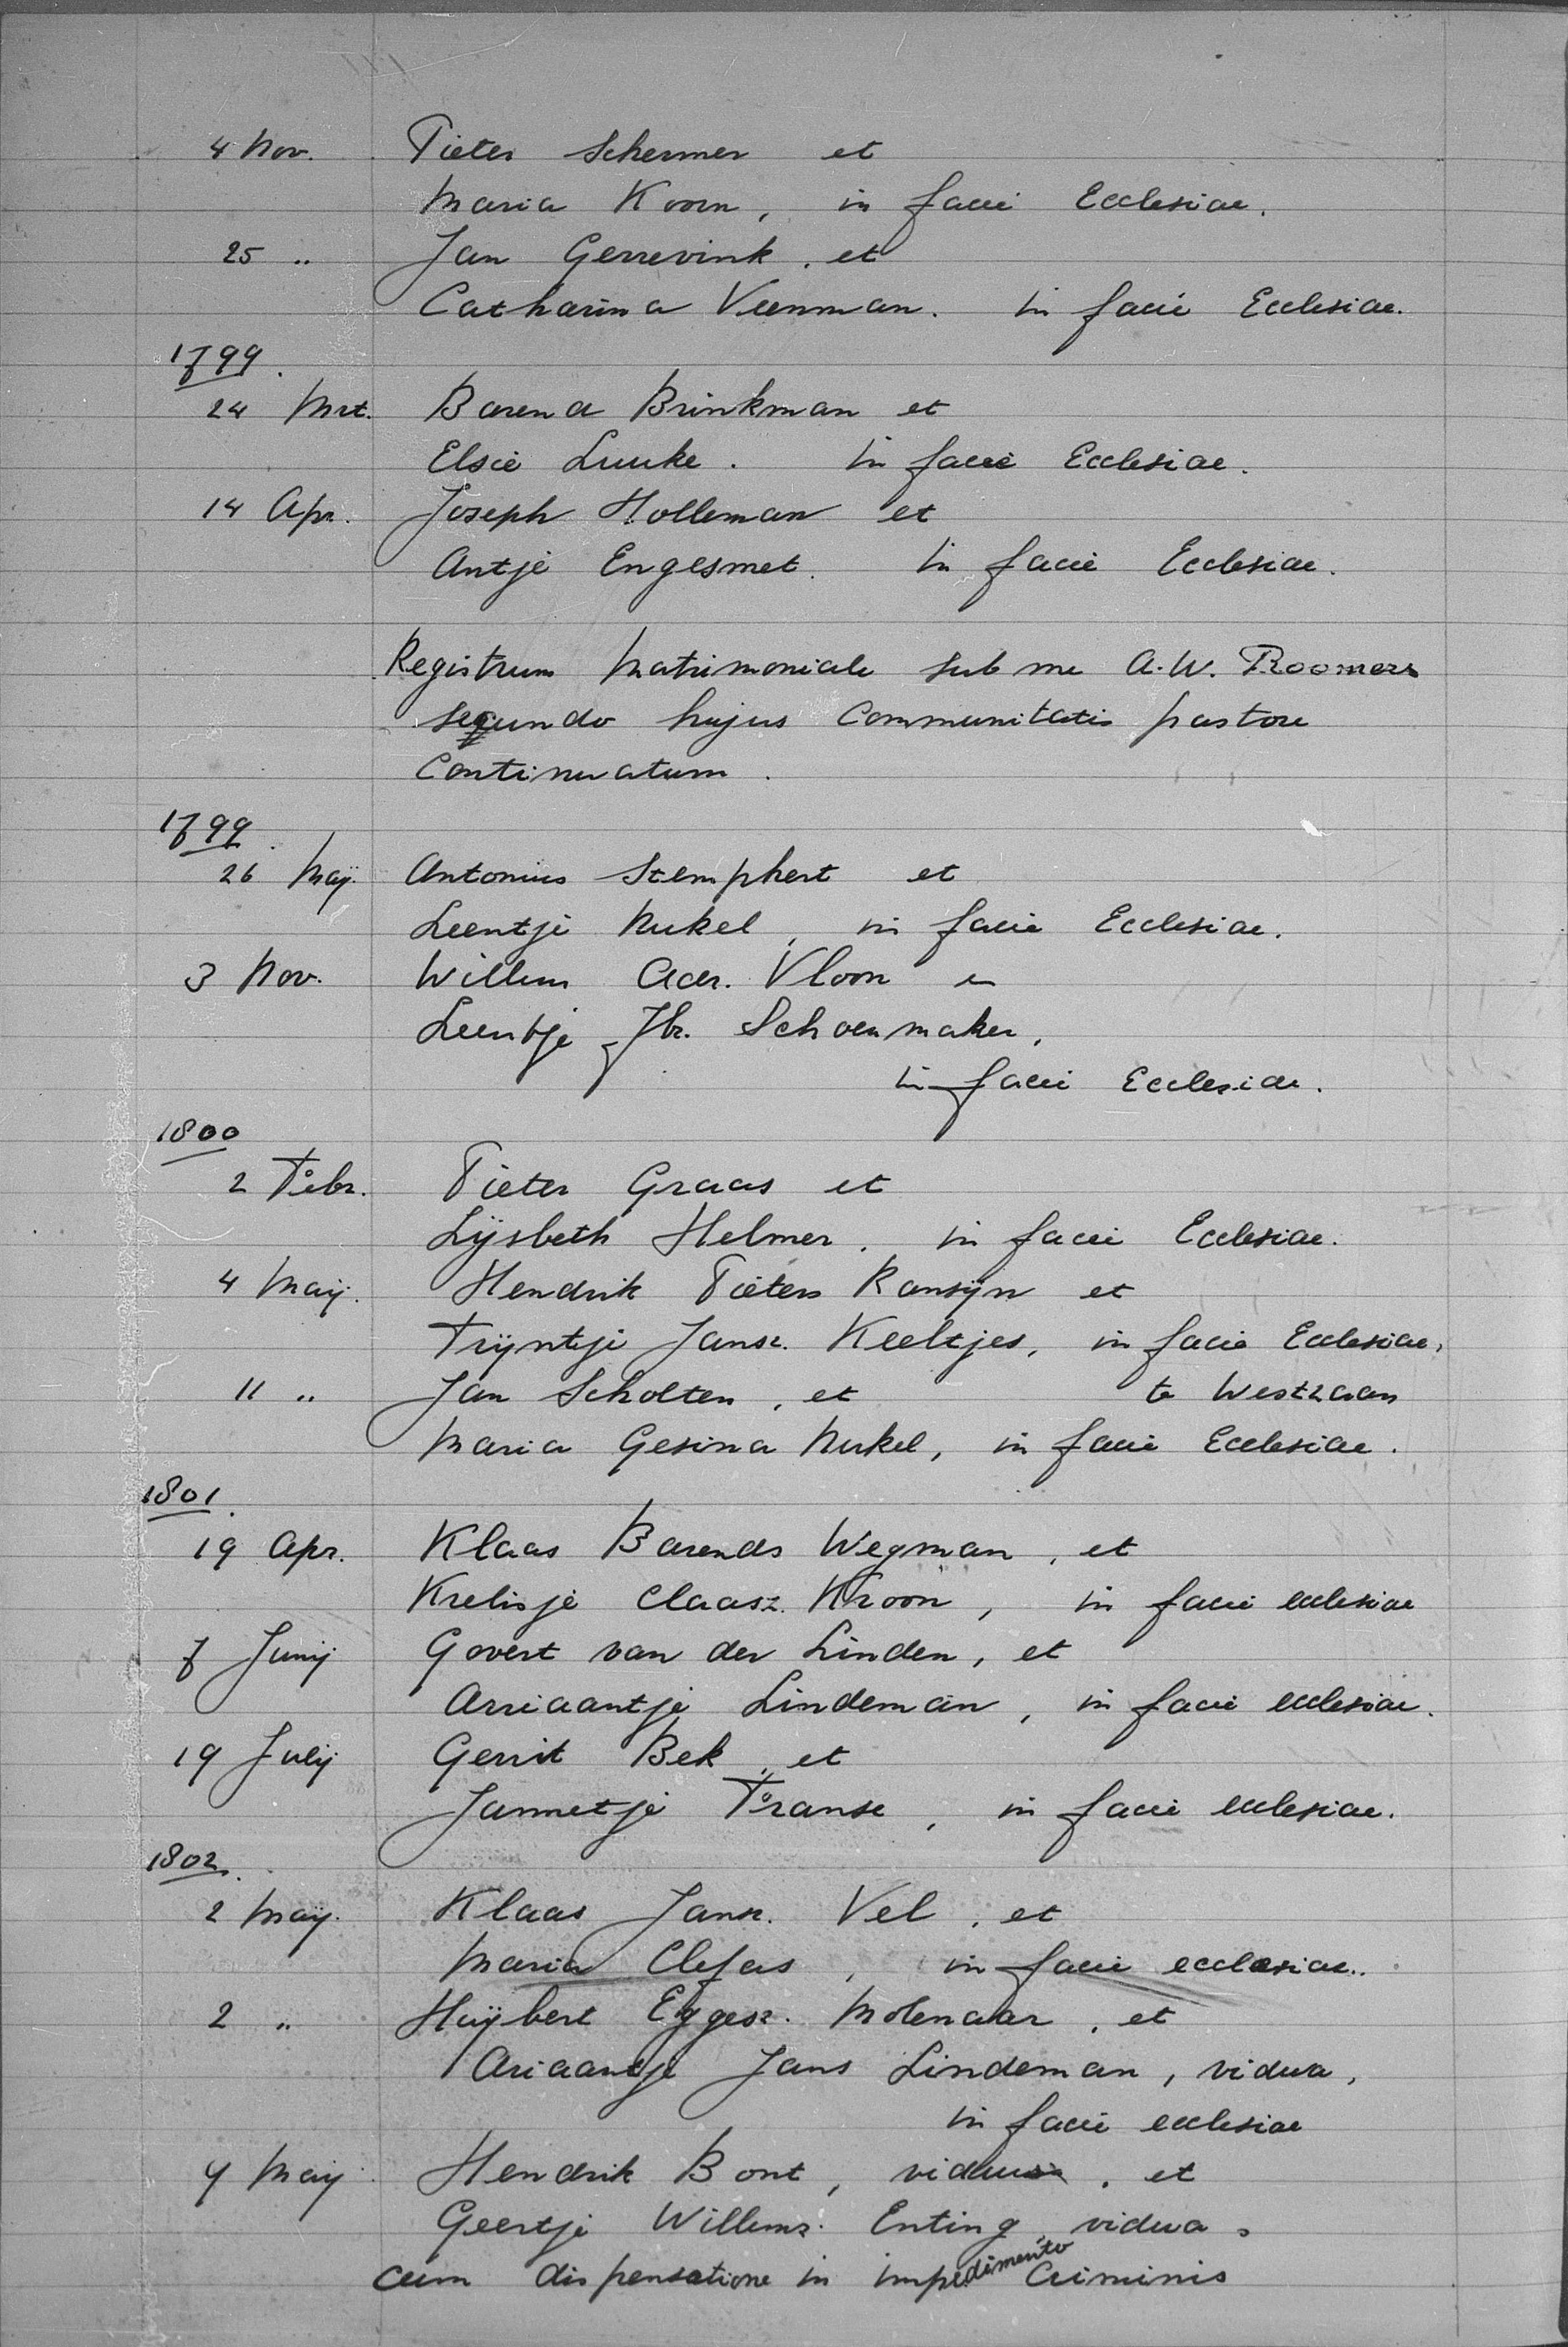 4 Nov. Pieter Schermer et
Maria Koorn, in facie Ecclesiae.
25 " Jan Gerrevink, et
Catharina Veenman. in facie Ecclesiae.
1799.
24 Mrt. Barend Brinkman et
Elsie Luuke. in facie Ecclesiae.
14 Apr. Joseph Holleman et
Antje Engesmet. in facie Ecclesiae.
Registrum Matrimoniale sub me A.W. Roomers
secundo hujus Communitatis pastore
Continuatum.
1799.
26 Maij. Antonius Stemphert et
Leentje Nukel, in facie Ecclesiae.
3 Nov. Willem Adr. Vloon en
Leentje Jbr. Schoenmaker,
in facie Ecclesiae.
1800
2 Febr. Pieter Graas et
Lijsbeth Helmer. in facie Ecclesiae.
4 Maij. Hendrik Pieters Ransijn et
Trijntje Jansz. Keeltjes, in facie Ecclesiae,
11 " Jan Scholten, et te Westzaan
Maria Gesina Nukel, in facie Ecclesiae.
1801.
19 Apr. Klaas Barends Wegman, et
Krelisje Claasz. Kroon, in facie ecclesiae
7 Junij Govert van der Linden, et
Arriaantje Lindeman, in facie ecclesiae.
19 Julij Gerrit Bek, et
Jannetje Franse, in facie ecclesiae.
1802.
2 Maij. Klaas Jansz. Vel, et
Maria Clefas, in facie ecclesiae.
2 " Huijbert Eggesz. Molenaar, et
Ariaantje Jans Lindeman, vidua,
in facie ecclesiae
9 Maij Hendrik Bont, viduus, et
Geertje Willemz. Enting, vidua.
cum dispensatione in impedimento Criminis